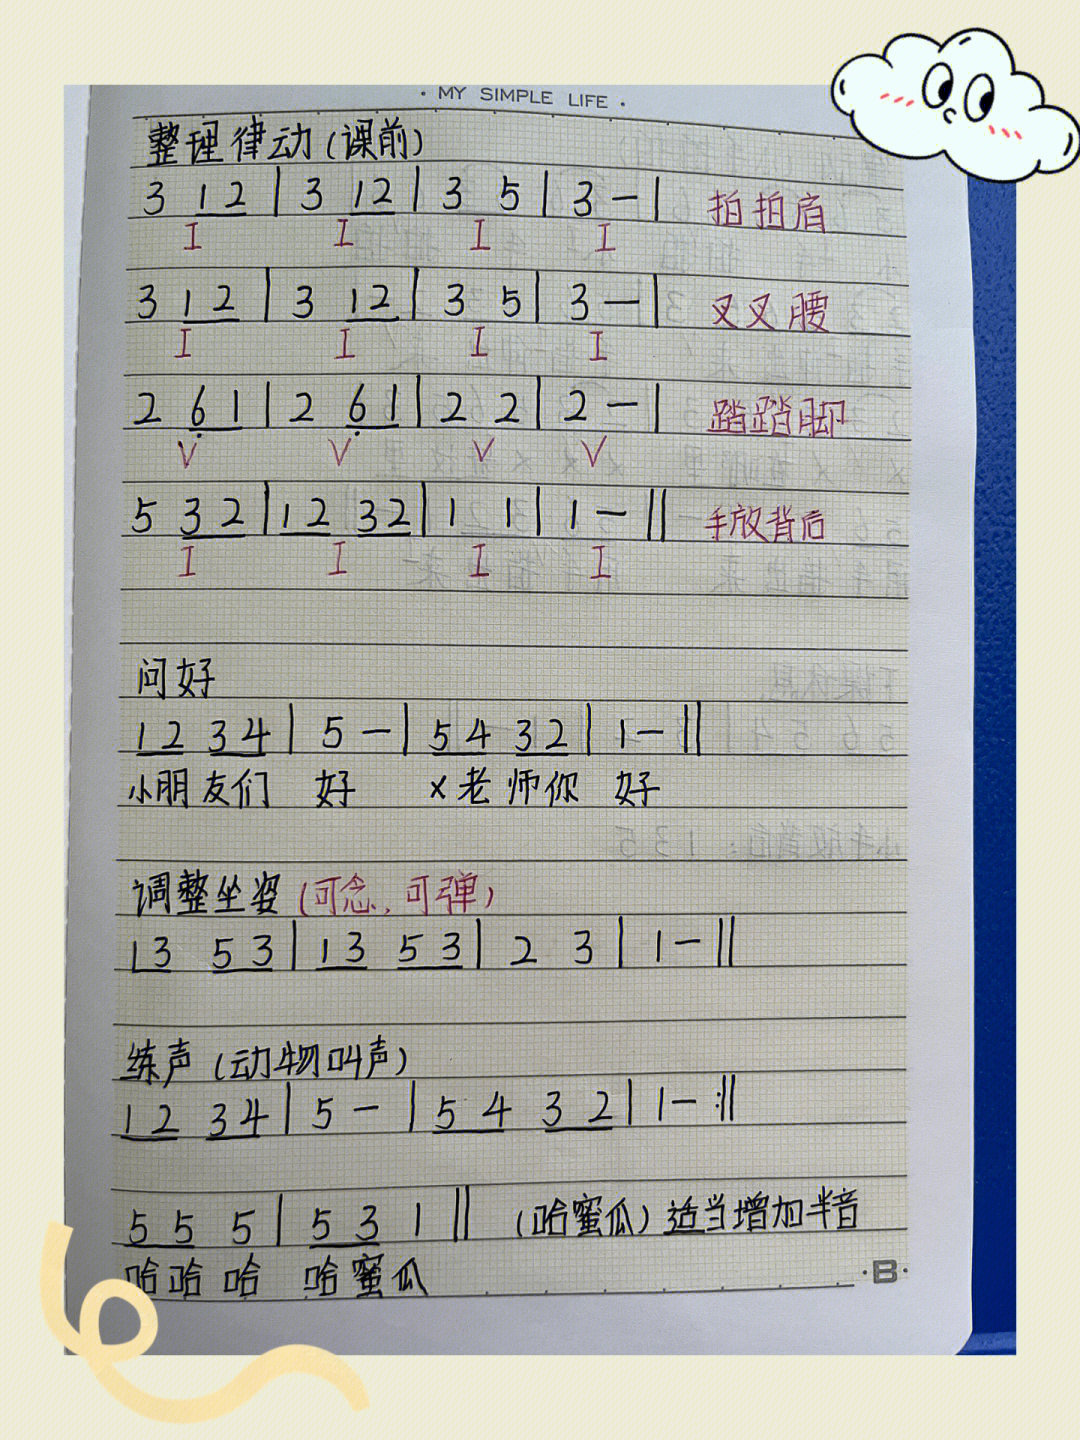 · MY SIMPLE LIFE ·
整理律动(课前)
3 12 | 3 12 | 3 5 | 3 — | 拍拍肩
I I I I
3 12 | 3 12 | 3 5 | 3 — | 叉叉腰
I I I I
2 6̣1 | 2 6̣1 | 2 2 | 2 — | 踏踏脚
V V V V
5 32 | 12 32 | 1 1 | 1 — || 手放背后
I I I I
问好
12 34 | 5 — | 54 32 | 1 — ||
小朋友们 好 x老师你 好
调整坐姿(可念,可弹)
13 53 | 13 53 | 2 3 | 1 — ||
练声(动物叫声)
12 34 | 5 — | 54 32 | 1 — :||
55 5 | 53 1 || (哈蜜瓜)适当增加半音
哈哈 哈 哈蜜瓜
·B·